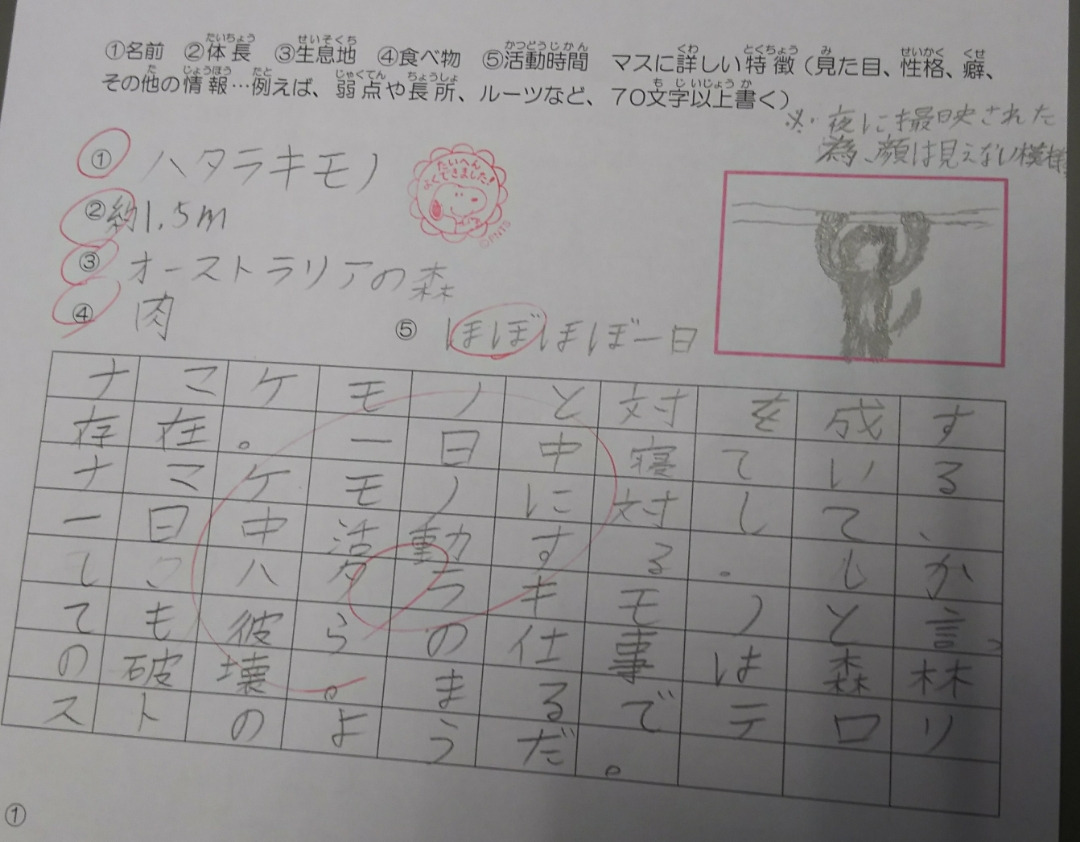 ①名前 ②体長 ③生息地 ④食べ物 ⑤活動時間 マスに詳しい特徴（見た目、性格、癖、
その他の情報…例えば、弱点や長所、ルーツなど、70文字以上書く）
※・夜に撮映された
為、顔は見えない模様
① ハタラキモノ
たいへん
よくできました!
②約1.5m
③ オーストラリアの森
④ 肉
⑤ ほぼほぼ一日
ナマケモノと対を成す
存在。一日中寝ている
ナマケモノに対して、
一日中活動する。しか
しこハタラキモノと言っ
ても彼らの仕事は森林
の破壊。まるでテロリ
ストのようだ。
①